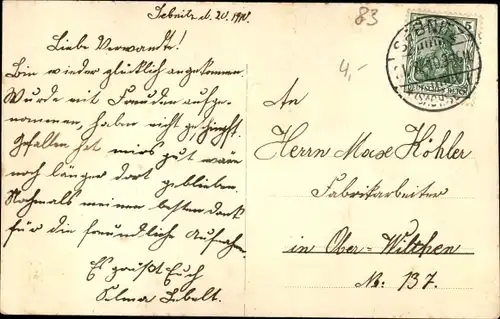 Sebnitz d. 20. 1910.
83
4,-
Liebe Verwandte!
Bin wieder glücklich angekommen.
Wurde mit Freuden aufge-
nommen, haben nicht geschimpft.
Gefallen hat mirs gut wäre
noch länger dort geblieben.
Nochmals meinen besten Dank
für die freundliche Aufnahme.
Es grüßt Euch
Selma
5
An
Herrn Max Köhler
Fabrikarbeiter
in Ober-Wilthen
No: 137.